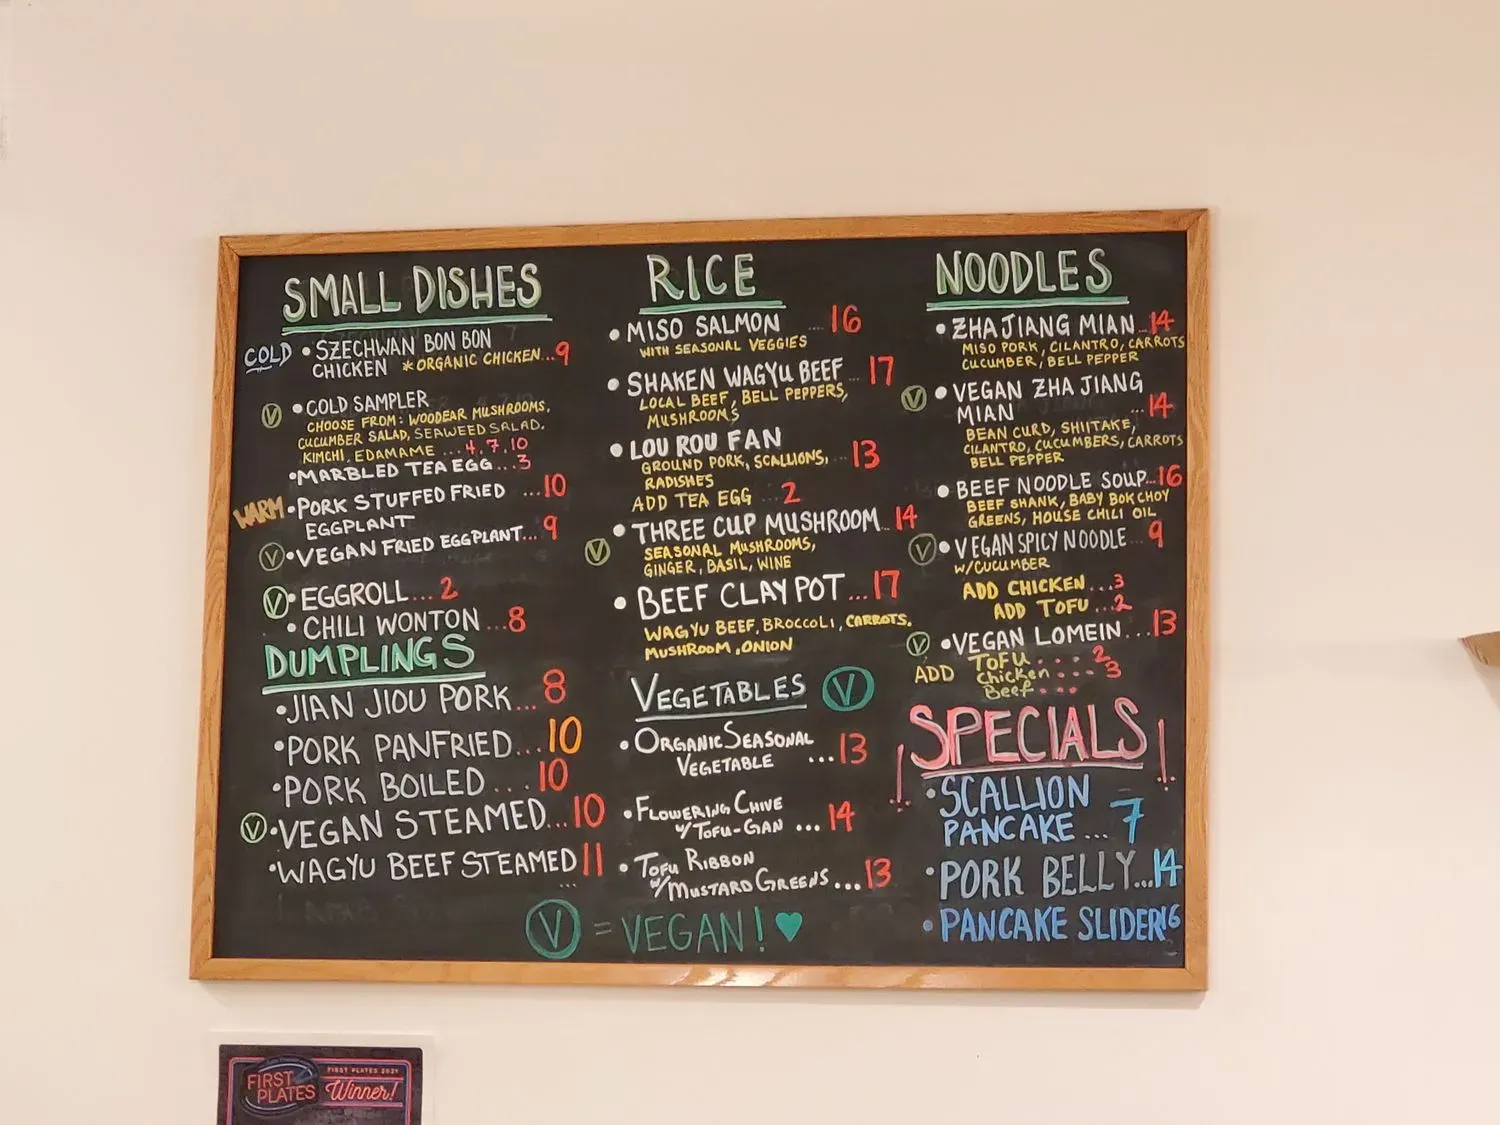 SMALL DISHES
COLD • SZECHWAN BON BON
CHICKEN *ORGANIC CHICKEN...9
V • COLD SAMPLER
CHOOSE FROM: WOODEAR MUSHROOMS,
CUCUMBER SALAD, SEAWEED SALAD,
KIMCHI, EDAMAME ...4,7,10
•MARBLED TEA EGG...3
WARM •PORK STUFFED FRIED ...10
EGGPLANT
V •VEGAN FRIED EGGPLANT...9
V •EGGROLL...2
• CHILI WONTON ...8
DUMPLINGS
•JIAN JIOU PORK...8
•PORK PANFRIED...10
•PORK BOILED ...10
V •VEGAN STEAMED...10
•WAGYU BEEF STEAMED 11
...
RICE
• MISO SALMON ....16
WITH SEASONAL VEGGIES
• SHAKEN WAGYU BEEF ...17
LOCAL BEEF, BELL PEPPERS,
MUSHROOMS
• LOU ROU FAN
GROUND PORK, SCALLIONS, ...13
RADISHES
ADD TEA EGG ...2
V • THREE CUP MUSHROOM...14
SEASONAL MUSHROOMS,
GINGER, BASIL, WINE
• BEEF CLAY POT...17
WAGYU BEEF, BROCCOLI, CARROTS,
MUSHROOM, ONION
VEGETABLES V
• ORGANIC SEASONAL
VEGETABLE ...13
• FLOWERING CHIVE
W/ TOFU-GAN ...14
• TOFU RIBBON
W/ MUSTARD GREENS...13
V = VEGAN! ♥
NOODLES
• ZHA JIANG MIAN...14
MISO PORK, CILANTRO, CARROTS
CUCUMBER, BELL PEPPER
V • VEGAN ZHA JIANG
MIAN ...14
BEAN CURD, SHIITAKE,
CILANTRO, CUCUMBERS, CARROTS
BELL PEPPER
• BEEF NOODLE SOUP...16
BEEF SHANK, BABY BOK CHOY
GREENS, HOUSE CHILI OIL
V • VEGAN SPICY NOODLE ...9
W/CUCUMBER
ADD CHICKEN ...3
ADD TOFU ...2
V •VEGAN LOMEIN...13
ADD TOFU .... 2
Chicken .... 3
Beef ...
! SPECIALS !
• SCALLION
PANCAKE ... 7
• PORK BELLY...14
• PANCAKE SLIDER 16
FIRST PLATES
FIRST PLATES 2021
Winner!